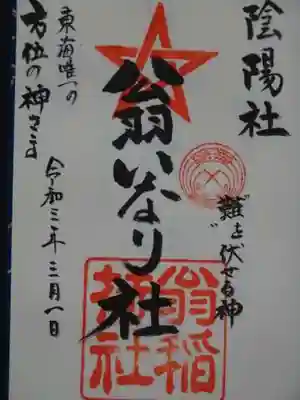 陰陽社
"難を伏せる神"
翁いなり社
翁稲荷社
東海唯一の
方位の神さま
令和三年三月一日